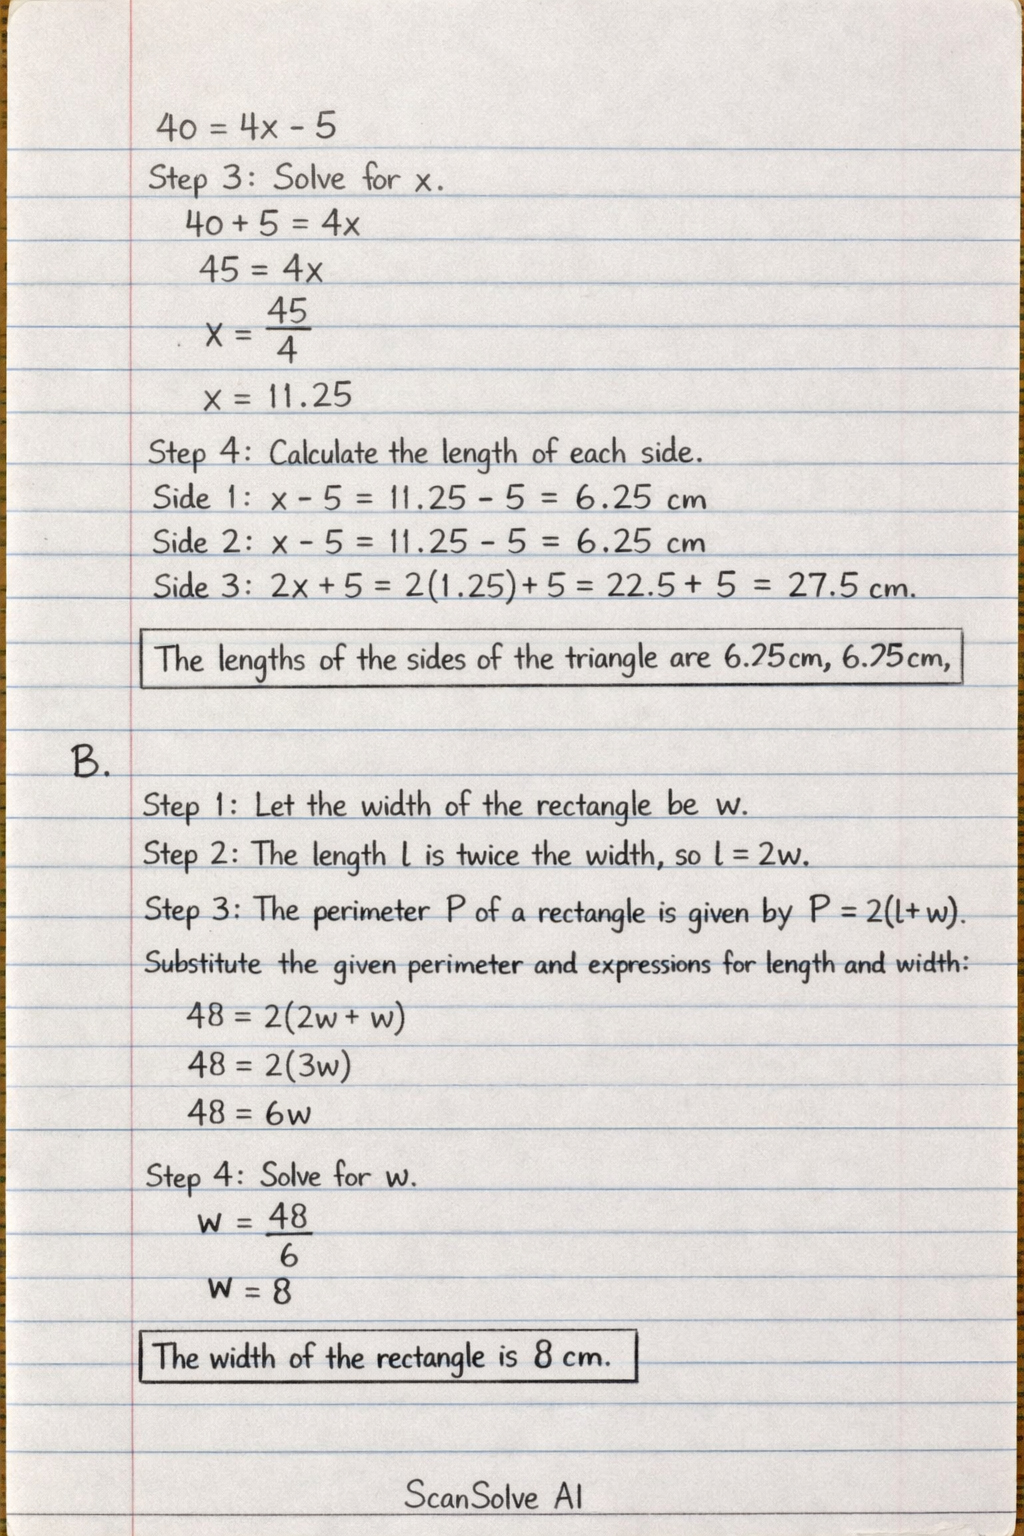 40 = 4x - 5
Step 3: Solve for x.
40 + 5 = 4x
45 = 4x
x = 45/4
x = 11.25
Step 4: Calculate the length of each side.
Side 1: x - 5 = 11.25 - 5 = 6.25 cm
Side 2: x - 5 = 11.25 - 5 = 6.25 cm
Side 3: 2x + 5 = 2(1.25) + 5 = 22.5 + 5 = 27.5 cm.
The lengths of the sides of the triangle are 6.25cm, 6.25cm,
B.
Step 1: Let the width of the rectangle be w.
Step 2: The length l is twice the width, so l = 2w.
Step 3: The perimeter P of a rectangle is given by P = 2(l + w).
Substitute the given perimeter and expressions for length and width:
48 = 2(2w + w)
48 = 2(3w)
48 = 6w
Step 4: Solve for w.
w = 48/6
w = 8
The width of the rectangle is 8 cm.
ScanSolve AI